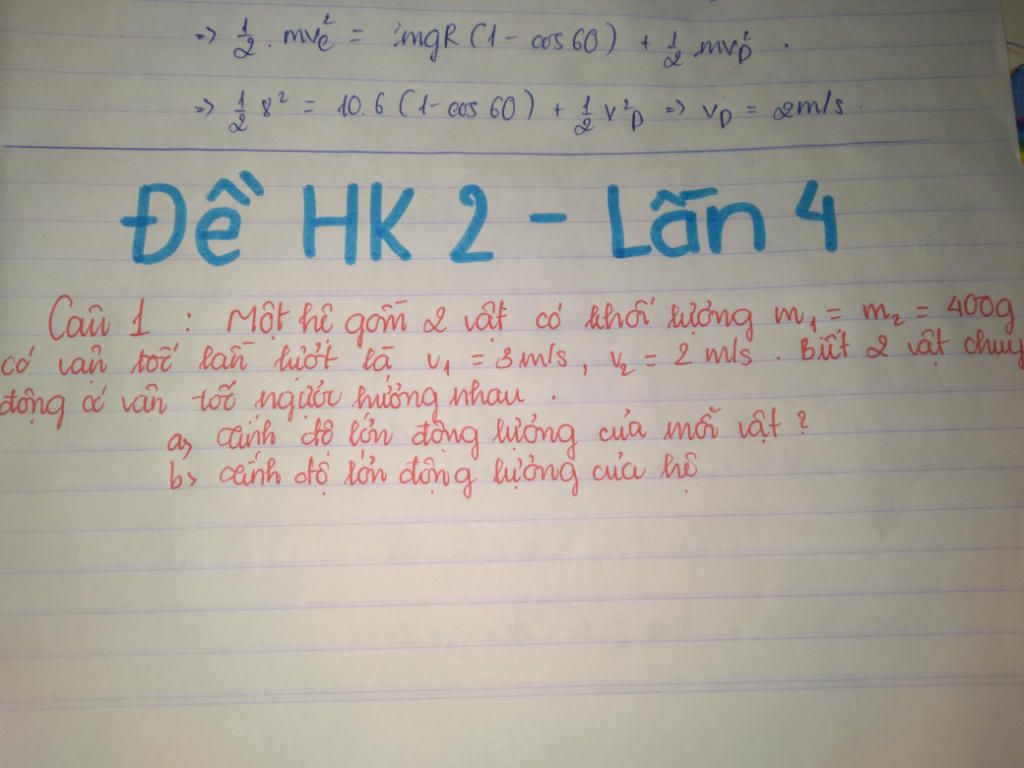 => 1/2 . mv_C² = mgR (1 - cos 60) + 1/2 mv_D² .
=> 1/2 8² = 10.6 (1 - cos 60) + 1/2 v²_D => v_D = 2m/s .
Đề HK 2 - Lần 4
Câu 1 : Một hệ gồm 2 vật có khối lượng m₁ = m₂ = 400g
có vận tốc lần lượt là v₁ = 3 m/s , v₂ = 2 m/s . Biết 2 vật chuy
động có vận tốc ngược hướng nhau .
a, Tính độ lớn động lượng của mỗi vật ?
b, Tính độ lớn động lượng của hệ